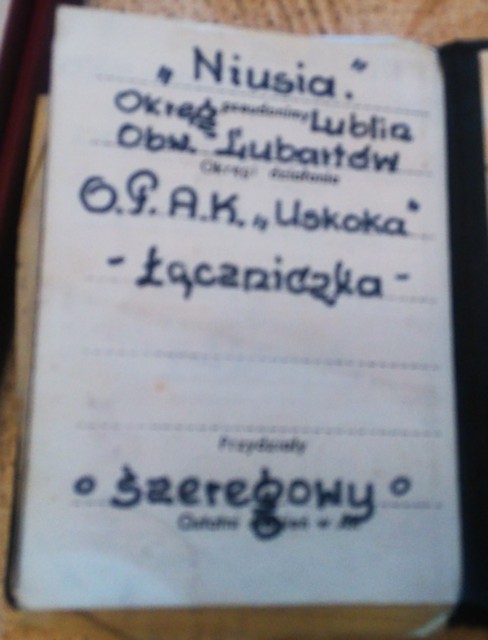 „Niusia."
pseudonimy
Okręg Lublin
Obw. Lubartów
Okręg działania
O.P. A.K. „Uskoka"
- Łączniczka -
Przydziały
o szeregowy o
Ostatni stopień w AK